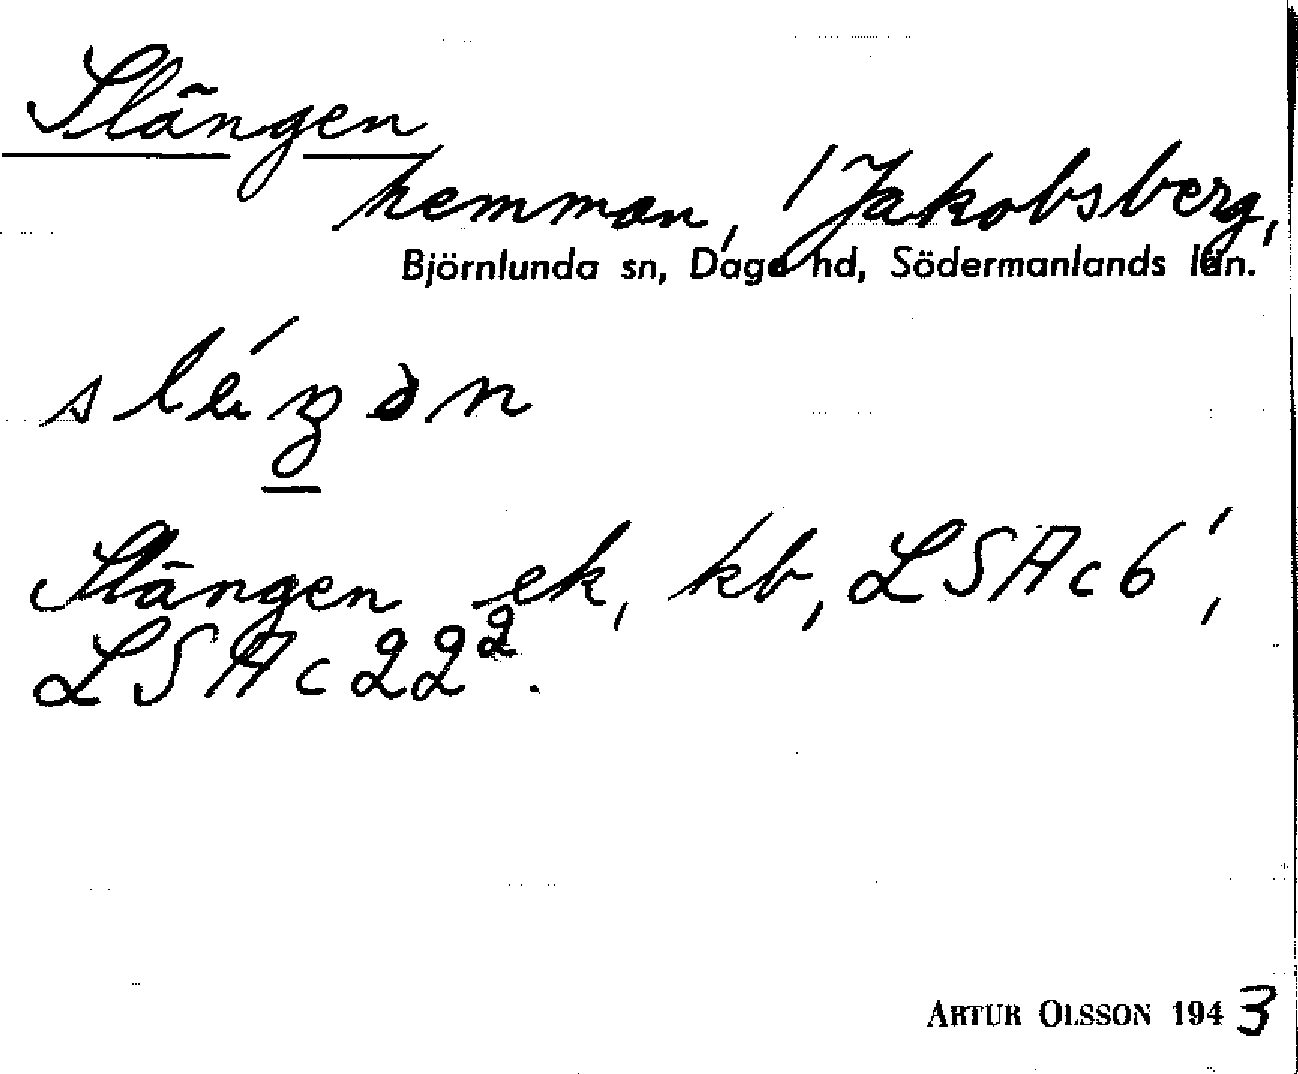 Slängen
hemman, /Jakobsberg,
Björnlunda sn, Daga hd, Södermanlands län.
Slängen ek, kb, LSA c 6¹,
LSA c 22².
ARTUR OLSSON 1943